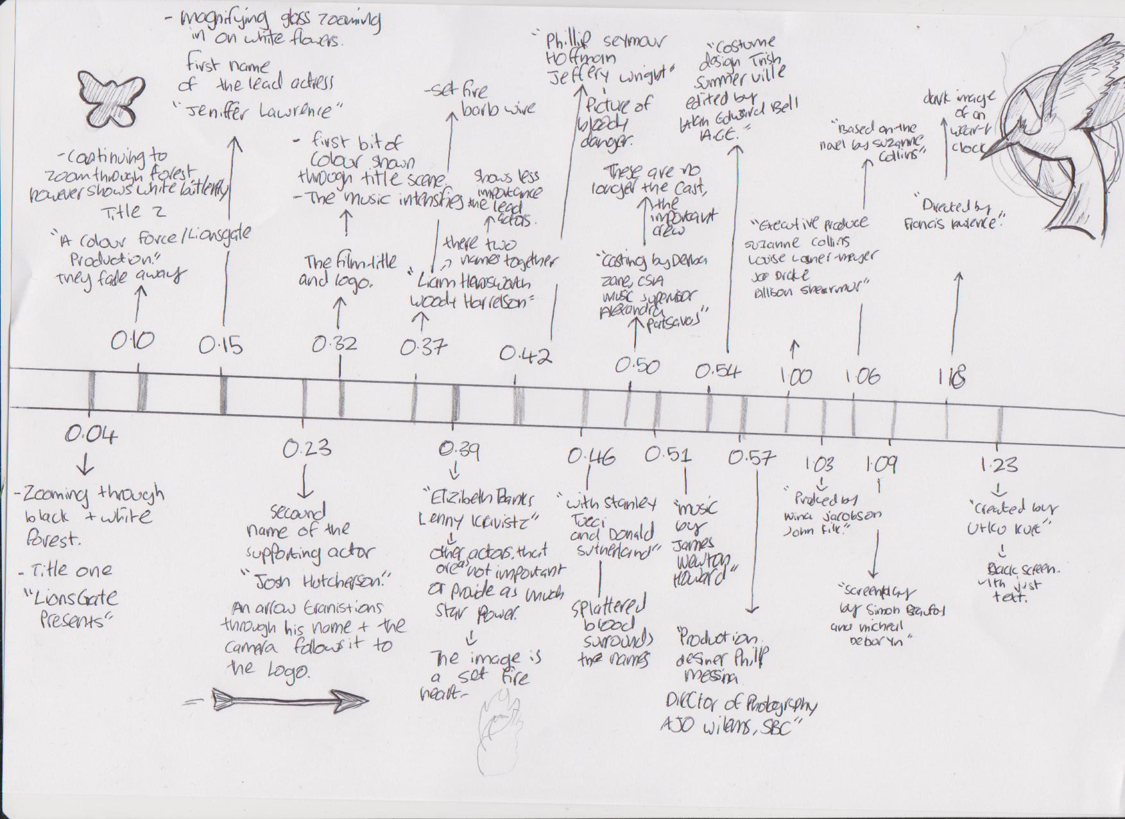 - magnifying glass zooming
in on white flowers.
first name
of the lead actress
"Jeniffer Lawrence"
- Continuing to
zoom through forest
however shows white butterfly
Title 2
"A Colour Force/Lionsgate
Production."
They fade away
- first bit of
colour shown
through title scene.
- The music intensifies
The Film title
and logo.
- set fire
barb wire
shows less
importance
the lead
actors.
there two
names together
"Liam Hemsworth
Woody Harrelson"
"Phillip Seymour
Hoffman
Jeffery Wright"
Picture of
bloody
danger.
These are no
longer the cast,
the
important
crew
"Casting by Debra
Zane, CSA
music supervisor
Alexandra
Patsavas"
"Costume
design Trish
Summerville
edited by
Alan Edward Bell
A.C.E."
"Executive produce
Suzanne Collins
Louise
Joe Drake
Allison Shearmur"
"Based on the
novel by Suzanne
Collins"
dark image
of an
clock
"Directed by
Francis Lawrence"
0.10
0.15
0.32
0.37
0.42
0.50
0.54
1.00
1.06
1.18
0.04
0.23
0.39
0.46
0.51
0.57
1.03
1.09
1.23
- Zooming through
black + white
forest.
- Title one
"LionsGate
Presents"
second
name of the
supporting actor
"Josh Hutcherson."
An arrow tranistions
through his name + the
camera follows it to
the Logo.
"Elizibeth Banks
Lenny Kravistz"
other actors that
are not important
or provide as much
star power.
The image is
a set fire
heart-
"with Stanley
Tucci
and Donald
Sutherland"
splattered
blood
surrounds
the names
"music
by
James
Newton
Howard"
"Production
desiner Philip
Messina
Director of Photography
AJO Wilems, SBC"
"Produced by
Nina Jacobson
John Kilik."
"Screenplay
by Simon Beaufoy
and micheal
Debaryn"
"Created by
Utku Kult"
Black screen
with just
text.